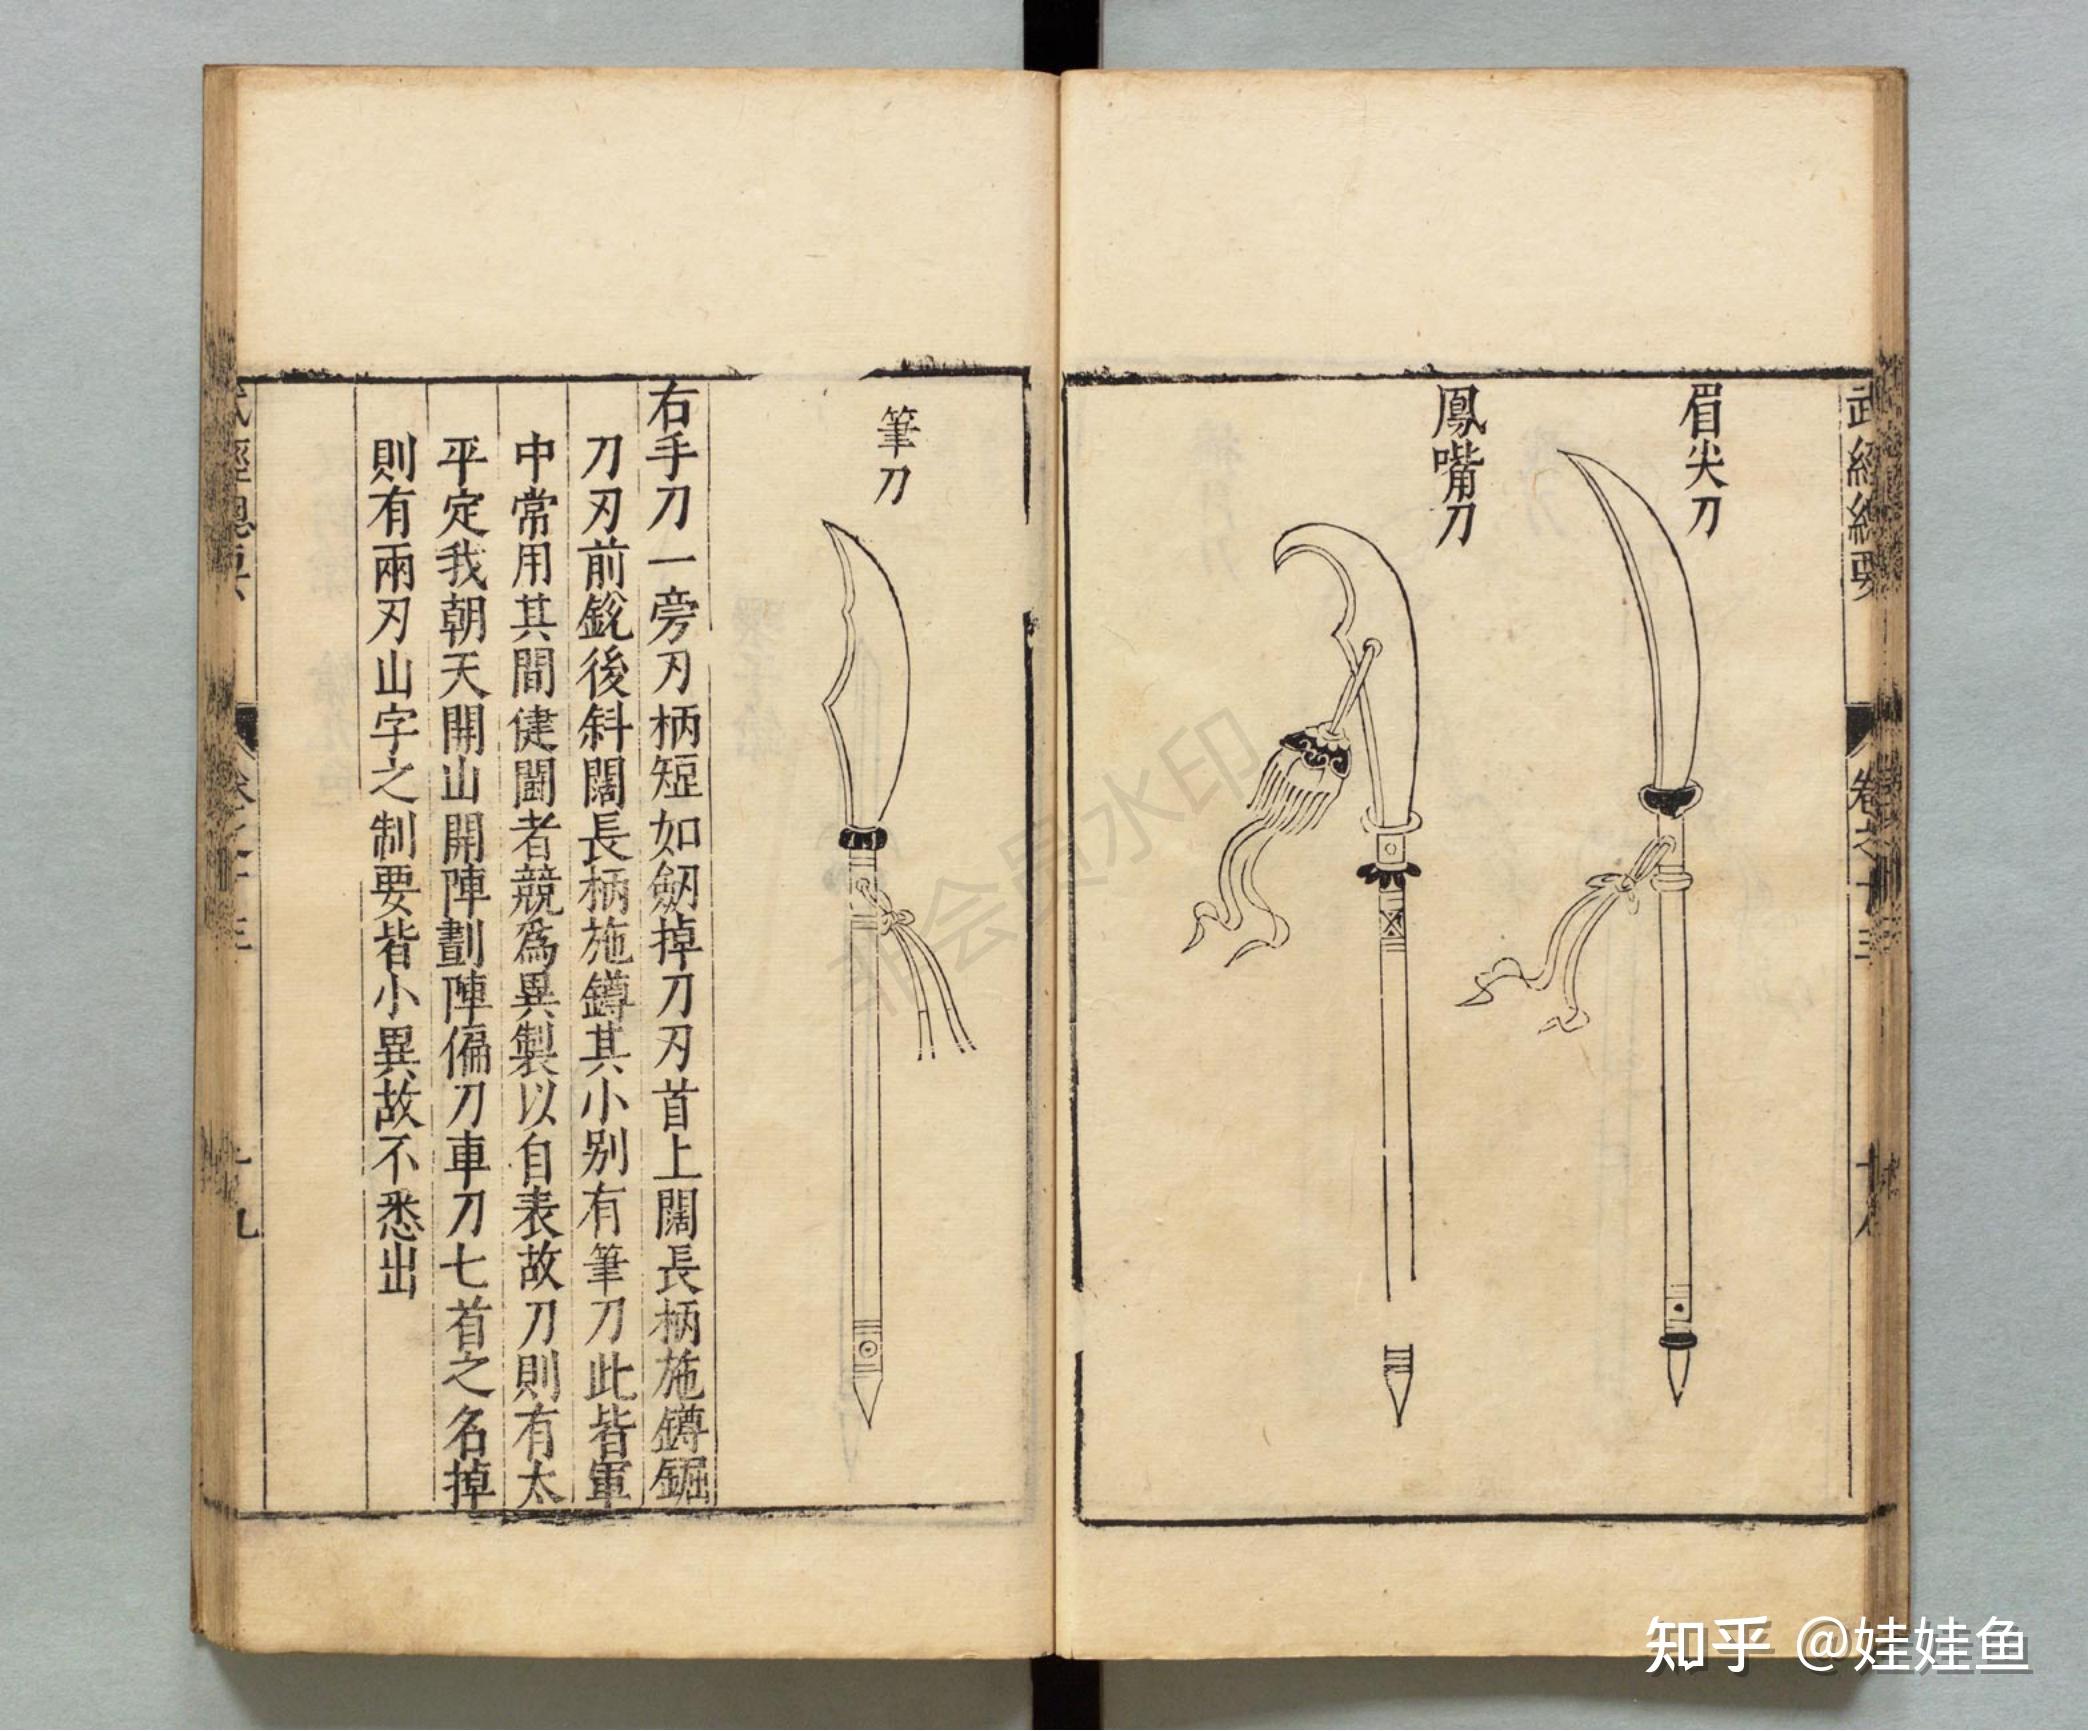 武經總要
卷之十三
眉尖刀
鳳嘴刀
筆刀
右手刀一旁刃柄短如劒掉刀刃首上闊長柄施鐏鋸
刀刃前銳後斜闊長柄施鐏其小别有筆刀此皆軍
中常用其間健鬬者競爲異製以自表故刀則有太
平定我朝天開山開陣劃陣偏刀車刀七首之名掉
則有兩刃山字之制要皆小異故不悉出
武經總要
非会员水印
知乎 @娃娃鱼